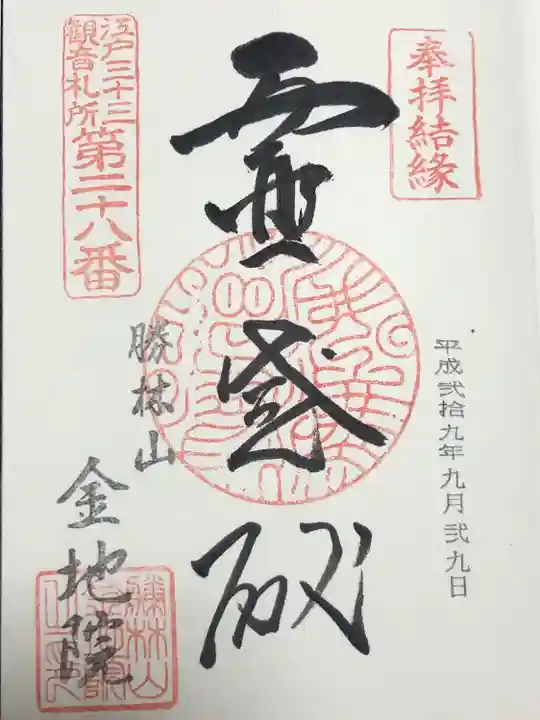 奉拝結縁
平成弐拾九年九月弐九日
霊感殿
江戸三十三
観音札所
第二十八番
勝林山
金地院